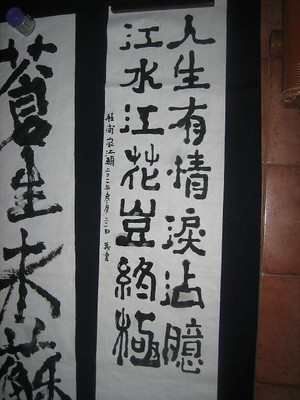 人生有情淚沾臆
江水江花豈終極
杜甫哀江頭
蒼生未蘇